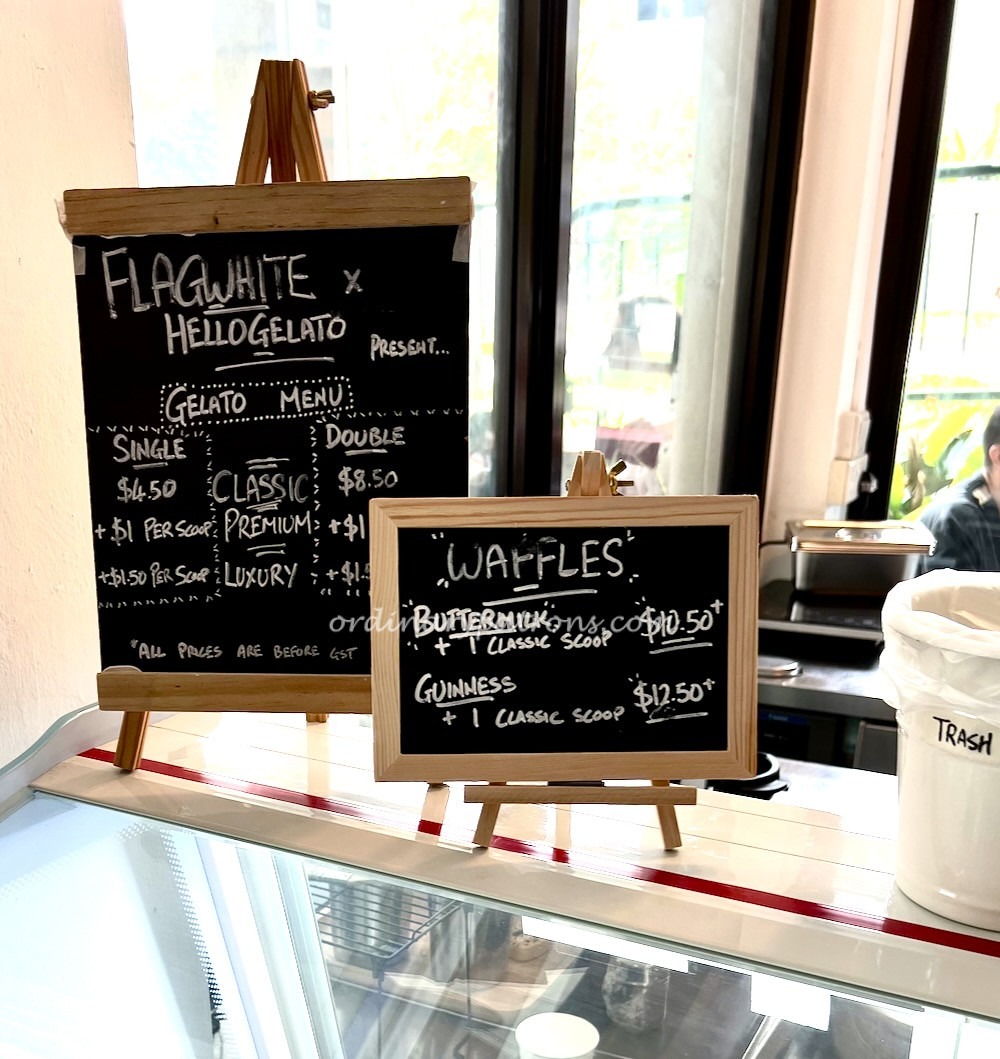 FLAGWHITE X
HELLOGELATO
PRESENT...
GELATO MENU
SINGLE DOUBLE
$4.50 CLASSIC $8.50
+ $1 PER SCOOP PREMIUM + $1
+ $1.50 PER SCOOP LUXURY + $1.5
*ALL PRICES ARE BEFORE GST
"WAFFLES"
BUTTERMILK $10.50+
+ 1 CLASSIC SCOOP
GUINNESS $12.50+
+ 1 CLASSIC SCOOP
TRASH